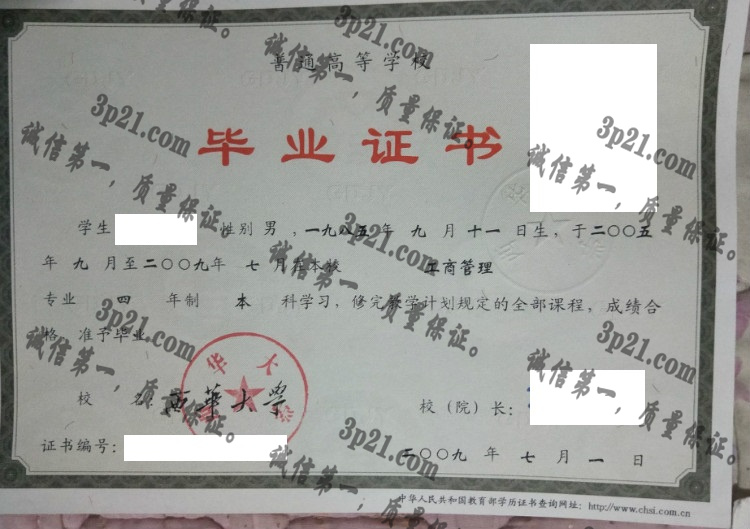 普通高等学校
毕业证书
学生 性别 男 ,一九八五年 九 月 十一 日生，于二〇〇五
年 九 月至二〇〇九年 七 月在本校 工商管理
专业 四 年制 本 科学习，修完教学计划规定的全部课程，成绩合
格，准予毕业
校 名 西华大学
校（院）长：
证书编号：
二〇〇九 年 七 月 一 日
中华人民共和国教育部学历证书查询网址：http://www.chsi.com.cn
3p21.com
诚信第一，质量保证。
3p21.com
诚信第一，质量保证。
3p21.com
诚信第一，质量保证。
3p21.com
诚信第一，质量保证。
3p21.com
诚信第一，质量保证。
3p21.com
诚信第一，质量保证。
3p21.com
诚信第一，质量保证。
3p21.com
诚信第一，质量保证。